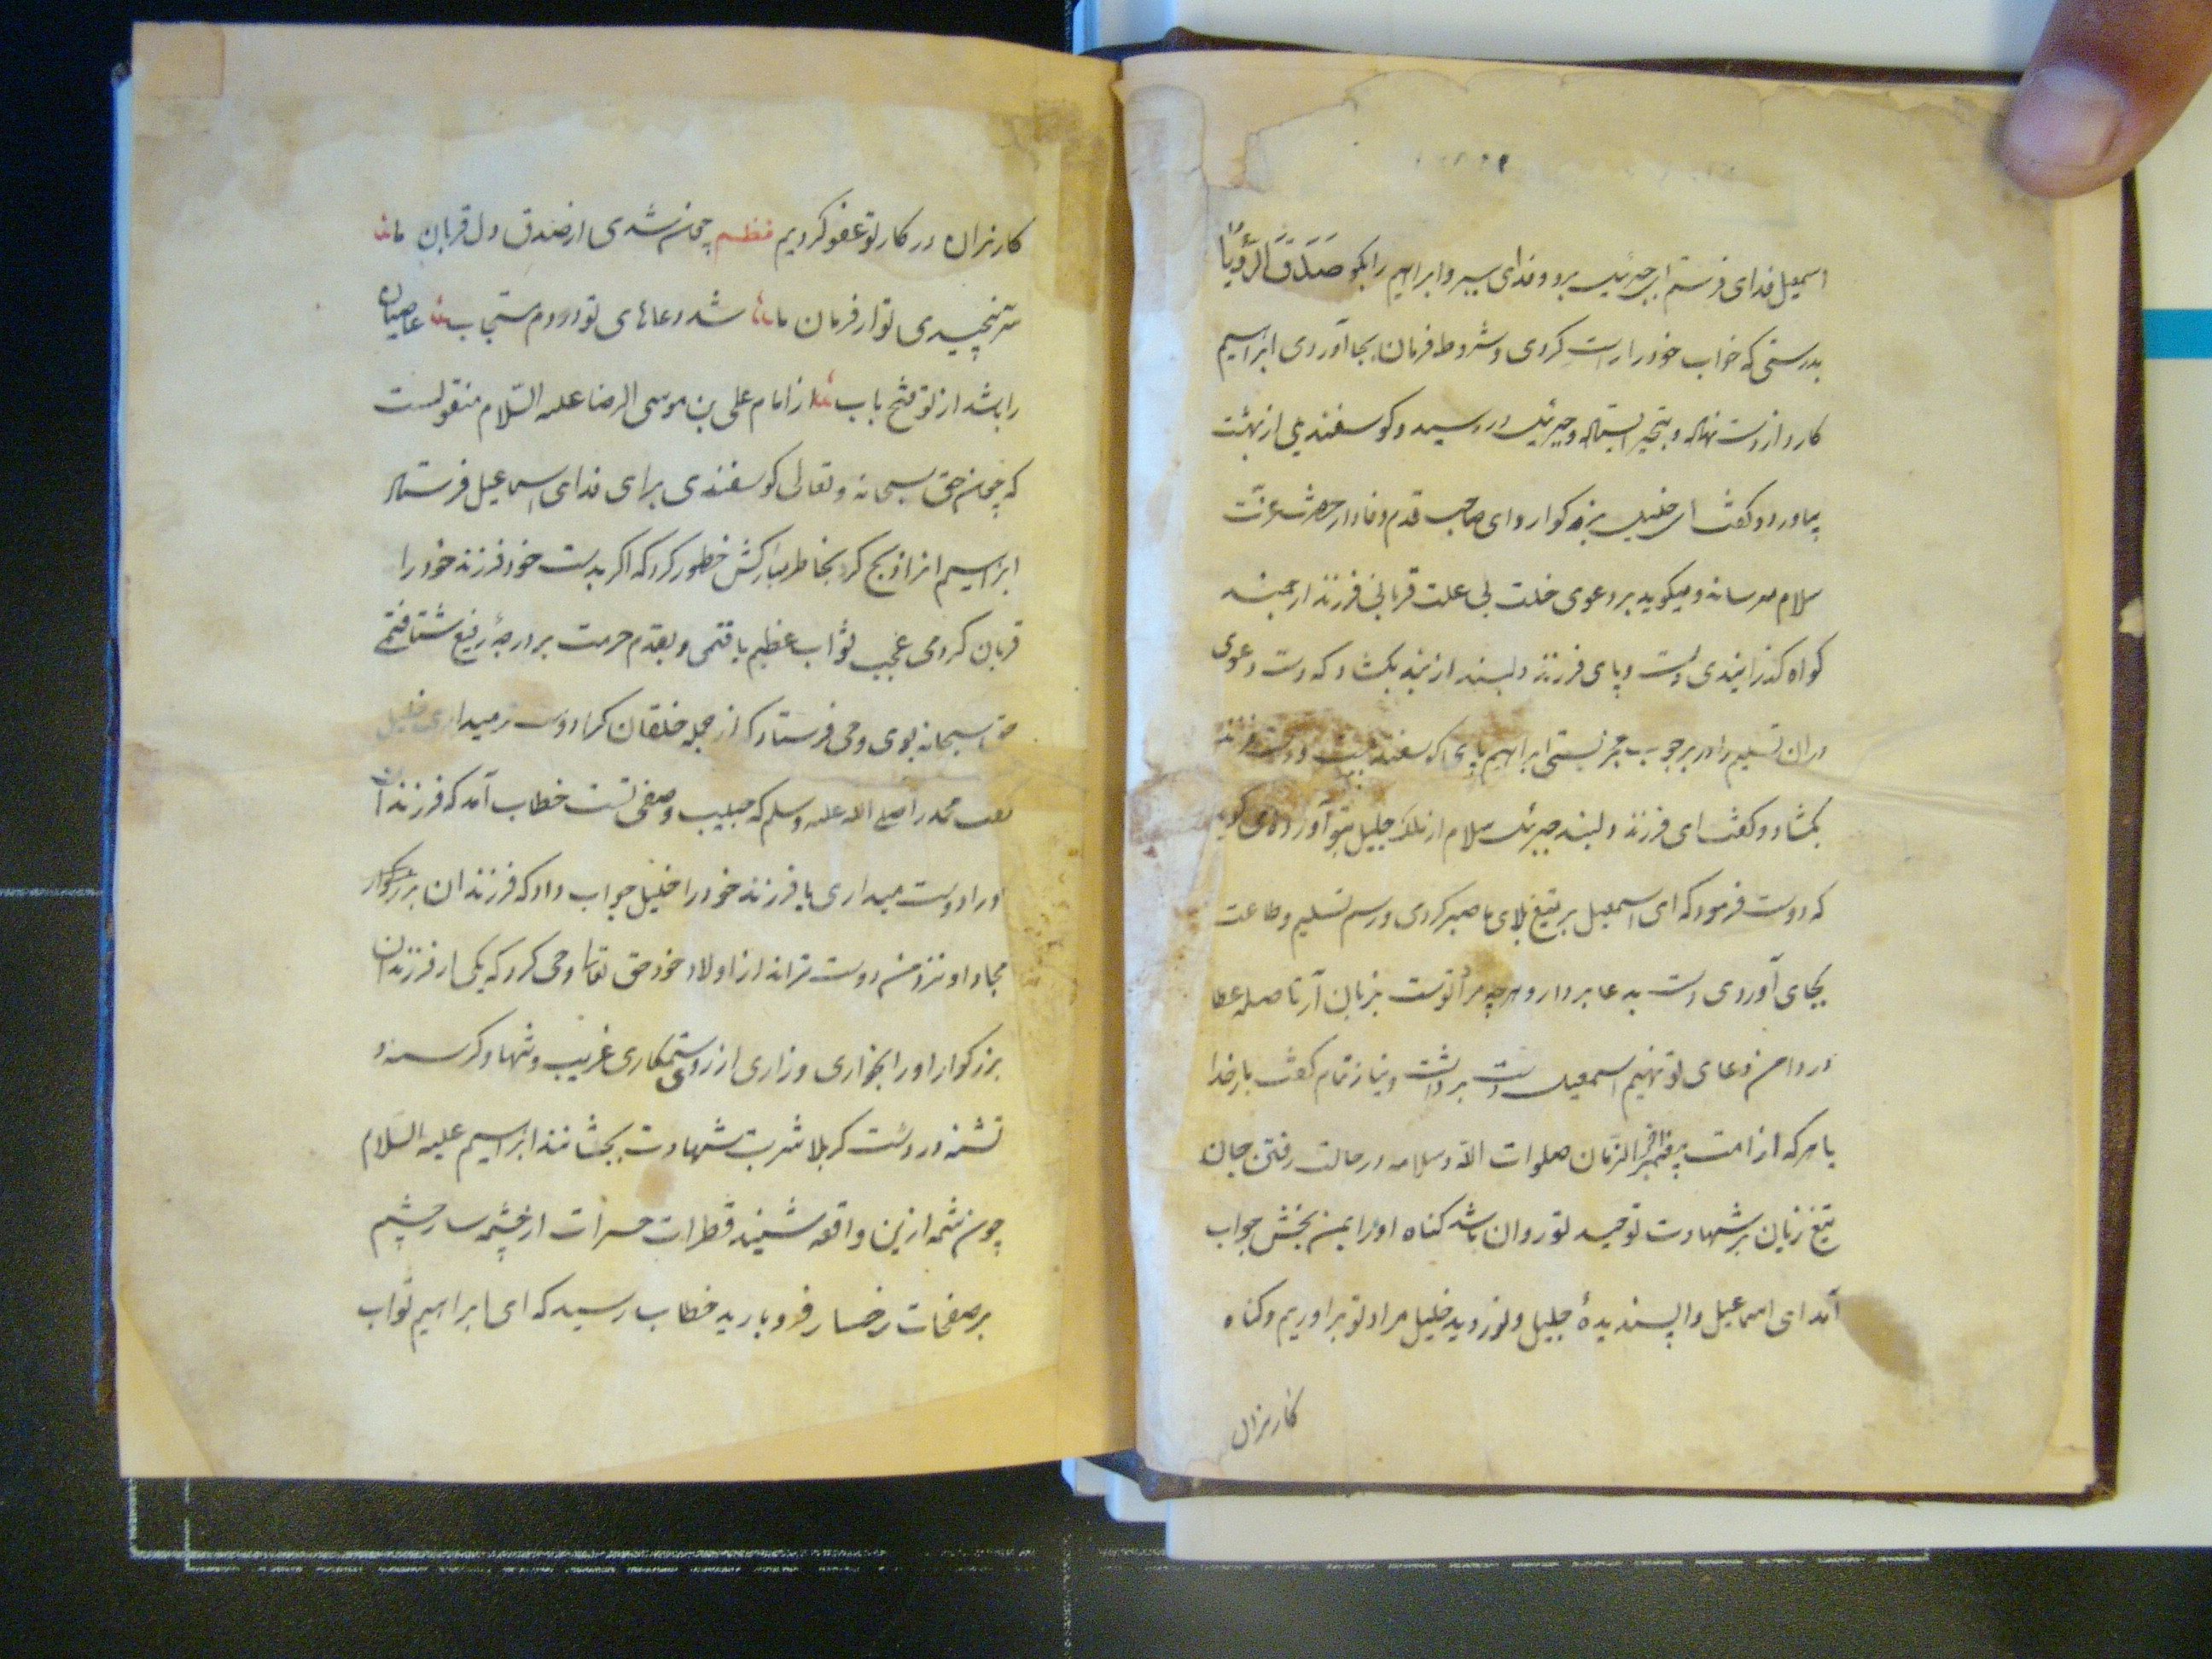 اسمعیل فدای فرستم ای جبرئیل برو و فدای ببر و ابراهیم را بگو صَدَّقْتَ الرُّؤیَا
بدرستی که خواب خود را راست کردی و شروط فرمان بجا آوردی ابراهیم
کارد از دست نهاد و بتحیر بایستاد و جبرئیل در رسید و کوسفندی از بهشت
بیاورد و کفت ای خلیل بزرکوار و ای صاحب قدم وفادار حضرت عزت
سلام میرساند و میکوید بر دعوی خلت بی علت قربانی فرزند ارجمند
کواه کذرانیدی دست و پای فرزند دلبند از بند بکشا که دست دعوی
دران تسلیم را بر چوب عجز بستی ابراهیم پای کوسفند ببست و دست فرزند
بکشاد و کفت ای فرزند دلبند جبرئیل سلام از ملک جلیل بتو آورده می کوید
که دوست فرمود که ای اسمعیل بر تیغ بلای ما صبر کردی و رسم تسلیم و طاعت
بجای آوردی دست بدعا بردار و هرچه مراد تست بزبان آر تا صله عطا
در دامن دعای تو نهیم اسمعیل دست برداشت و بنیاز تمام کفت بار خدا
یا هر که از امت پیغمبر آخر الزمان صلوات الله و سلامه در حالت رفتن جان
تیغ زبان بر شهادت توحید تو روان باشد کناه او را بمن بخش جواب
آمد ای اسماعیل و ای پسندیدهٔ جلیل و نور دیده خلیل مراد تو براوریم و کناه
کناه کاران
کارنران در کار تو عفو کردیم نظم چون شدی از صدق دل قربان ما
سر نپیچیدی تو از فرمان ما شد دعاهای تو در دم مستجاب عاصیان
را باشد از تو فتح باب از امام علی بن موسی الرضا علیه السلام منقولست
که چون حق سبحانه و تعالی کوسفندی برای فدای اسماعیل فرستاد
ابراهیم انرا ذبح کرد بخاطر مبارکش خطور کرد که اکر بدست خود فرزند خود را
قربان کردمی عجب ثواب عظیم یافتمی و بقدم حرمت بر درجهٔ رفیع شتافتمی
حق سبحانه بوی وحی فرستاد که از جمله خلقان کرا دوست تر میداری خلیل
کفت محمد را صلی الله علیه وسلم که حبیب و صفی تست خطاب آمد که فرزندان
او را دوست میداری یا فرزند خود را خلیل جواب داد که فرزندان بزرکوار
او نزد من دوست تراند از اولاد خود حق تعالی وحی کرد که یکی از فرزندان
بزرکوار او را بخواری و زاری از روی ستمکاری غریب و تنها و کرسنه و
تشنه در دشت کربلا شربت شهادت بچشانند ابراهیم علیه السلام
چون شمه ازین واقعه شنید قطرات حسرات از چشمه سار چشم
بر صفحات رخسار فرو بارید خطاب رسید که ای ابراهیم ثواب